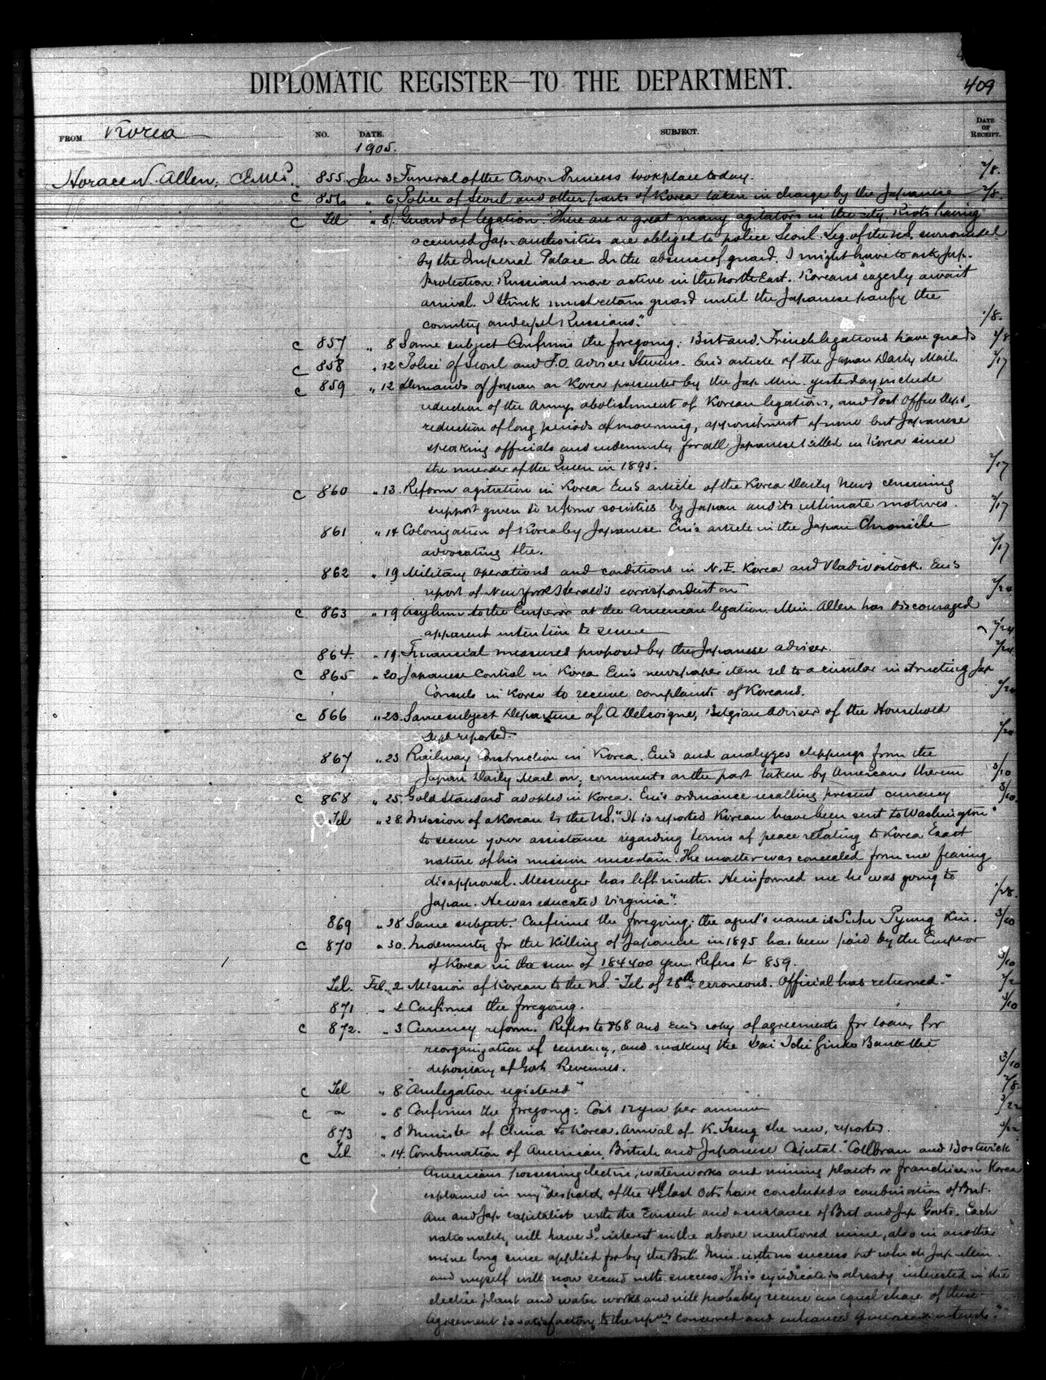 DIPLOMATIC REGISTER—TO THE DEPARTMENT.
409
FROM Korea NO. DATE. SUBJECT. DATE OF RECEIPT.
1905.
Horace N. Allen, 855 Jan 3 Funeral of the Crown Princess took place today. 2/8.
c 856 " 6 Police of Seoul and other parts of Korea taken in charge by the Japanese 2/8.
c Tel " 8 Guard of legation. There are a great many agitators in the city. Riots having
occurred Jap. authorities are obliged to police Seoul. Leg. of the U.S. surrounded
by the Imperial Palace. In the absence of guard, I might have to ask Jap.
protection. Russians more active in the North East. Koreans eagerly await
arrival. I think must retain guard until the Japanese pacify the
country and expel Russians." 1/8.
c 857 " 8 Same subject Confirms the foregoing: Brit and. French legations have guards 2/8
c 858 " 12 Police of Seoul and F.O. Adviser Stevens. Encs article of the Japan Daily Mail 2/17
c 859 " 12 Demands of Japan on Korea presented by the Jap. Min. yesterday include
reduction of the Army, abolishment of Korean legations, and Post Office Dept.,
reduction of long periods of mourning, appointment of none but Japanese
speaking officials and indemnity for all Japanese killed in Korea since
the murder of the Queen in 1895. 2/17
c 860 " 13. Reform agitation in Korea Encs article of the Korea Daily News censuring
support given to reform societies by Japan and its ultimate motives. 2/17
861 " 14 Colonization of Korea by Japanese. Encs article in the Japan Chronicle
advocating the. 2/17
862 " 19 Military operations and conditions in N.E. Korea and Vladivostock. Encs
report of New York Herald's correspondent on 2/24
c 863 " 19 Asylum to the Emperor at the American legation. Min. Allen has discouraged
apparent intention to secure 2/24
864. " 19. Financial measures proposed by the Japanese adviser. 2/24
c 865 " 20 Japanese Control in Korea Encs newspaper item rel to a circular instructing Jap
Consuls in Korea to receive complaints of Koreans.
c 866 " 23. Same subject Departure of A Delcoigne, Belgian adviser of the Household
Dept reported.
867 " 23 Railway Construction in Korea. Encs and analyzes clippings from the
Japan Daily Mail on, comments on the part taken by Americans therein 3/10
c 868 " 25. Gold Standard adopted in Korea. Encs ordinance recalling present currency 3/10
Tel " 28. Mission of a Korean to the U.S. "It is reported Korean have been sent to Washington
to secure your assistance regarding terms of peace relating to Korea Exact
nature of his mission uncertain. The matter was concealed from me fearing
disapproval. Messenger has left ninth. He informed me he was going to
Japan. He was educated Virginia". 1/28.
869 " 28 Same subject. Confirms the foregoing; the agent's name is Pyung Kiu. 3/10
c 870 " 30. Indemnity for the killing of Japanese in 1895 has been paid by the Emperor
of Korea in the sum of 184400 yen. Refers to 859. 3/10
Tel. Feb. 2. Mission of Korean to the U.S. "Tel of 28th erroneous. Official has returned." 2/2
871 " 2 Confirms the foregoing. 3/10
c 872. " 3 Currency reform. Refers to 868 and Encs copy of agreements for loans for
reorganization of currency, and making the Dai Ichi Ginko Bank the
depositary of Govt Revenues. 3/10
c Tel " 8 "Amlegation registered" 2/8
c a " 8 Confirms the foregoing: Cost 12 yen per annum
873 " 8 Minister of China to Korea. Arrival of K. Tseng the new, reported.
c Tel " 14. Combination of American, British and Japanese Capital. "Collbran and Bostwick
Americans possessing electric, waterworks and mining plants or franchise in Korea
explained in my despatch, of the 4th last Oct. have concluded a combination of Brit.
Am and Jap capitalists with the consent and assistance of Brit and Jap Govts. Each
nationality will have interest in the above mentioned mine, also in another
mine long since applied for by the Brit. Min. with no success but which Jap. Min.
and myself will now secure with success. This syndicate is already interested in the
electric plant and water works and will probably secure an equal share of these
Agreement is satisfactory to the concerned and enhances American interests."